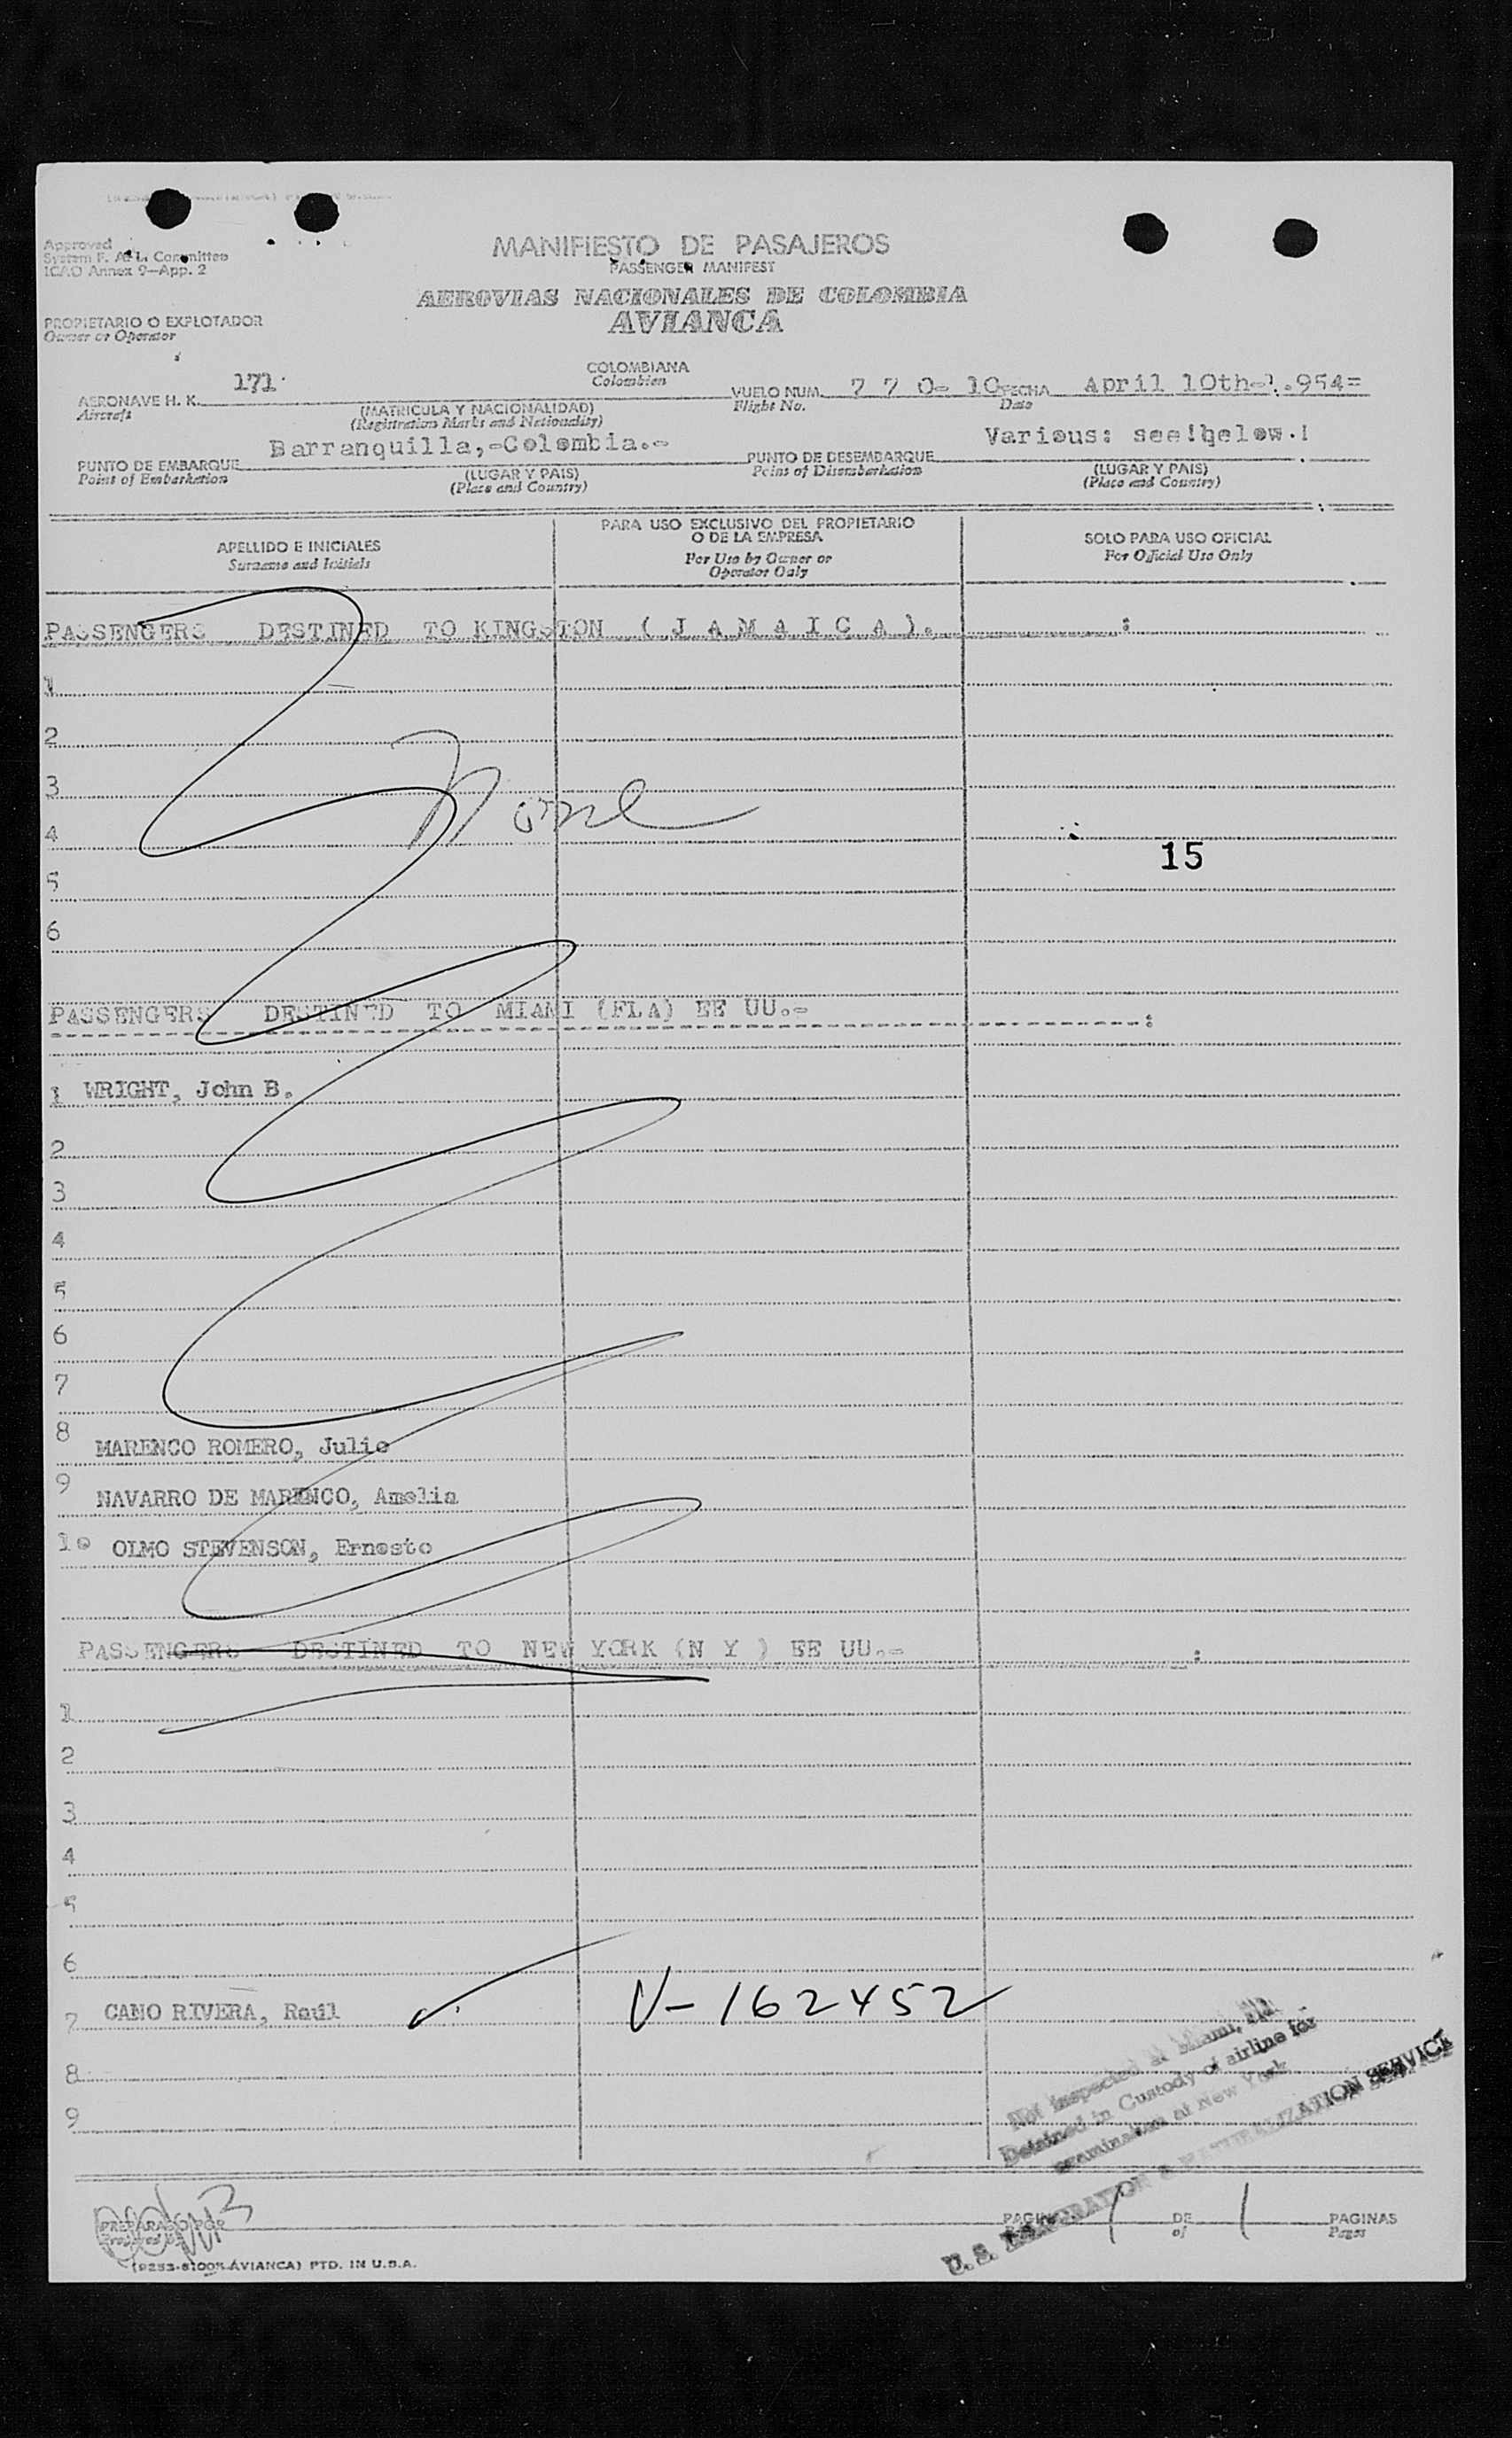 Approved
System F. A. L. Committee
ICAO Annex 9—App. 2
MANIFIESTO DE PASAJEROS
PASSENGER MANIFEST
AEROVIAS NACIONALES DE COLOMBIA
AVIANCA
PROPIETARIO O EXPLOTADOR
Owner or Operator
AERONAVE H. K. 171 COLOMBIANA VUELO NUM. 7 7 0- 10 FECHA April 10th-1.954=
Aircraft Colombian Flight No. Date
(MATRICULA Y NACIONALIDAD)
(Registration Marks and Nationality)
PUNTO DE EMBARQUE Barranquilla,-Colombia.- PUNTO DE DESEMBARQUE Various: see!below.!
Point of Embarkation (LUGAR Y PAIS) Point of Disembarkation (LUGAR Y PAIS)
(Place and Country) (Place and Country)
APELLIDO E INICIALES PARA USO EXCLUSIVO DEL PROPIETARIO O DE LA EMPRESA SOLO PARA USO OFICIAL
Surname and Initials For Use by Owner or Operator Only For Official Use Only
PASSENGERS DESTINED TO KINGSTON ( J A M A I C A ). :
1
2
3
None
4
15
5
6
PASSENGERS DESTINED TO MIAMI (FLA) EE UU.- :
1 WRIGHT, John B.
2
3
4
5
6
7
8 MARENCO ROMERO, Julio
9 NAVARRO DE MARENCO, Amelia
10 OLMO STEVENSON, Ernesto
PASSENGERS DESTINED TO NEW YORK (N Y ) EE UU.- :
1
2
3
4
5
6
7 CANO RIVERA, Raúl V-162452
8
9
Not inspected at Miami, Fla.
Detained in Custody of airline for
examination at New York
U. S. IMMIGRATION & NATURALIZATION SERVICE
PREPARADO POR PAGINA 1 DE 1 PAGINAS
Prepared by of Pages
AVIANCA) PTD. IN U.S.A.